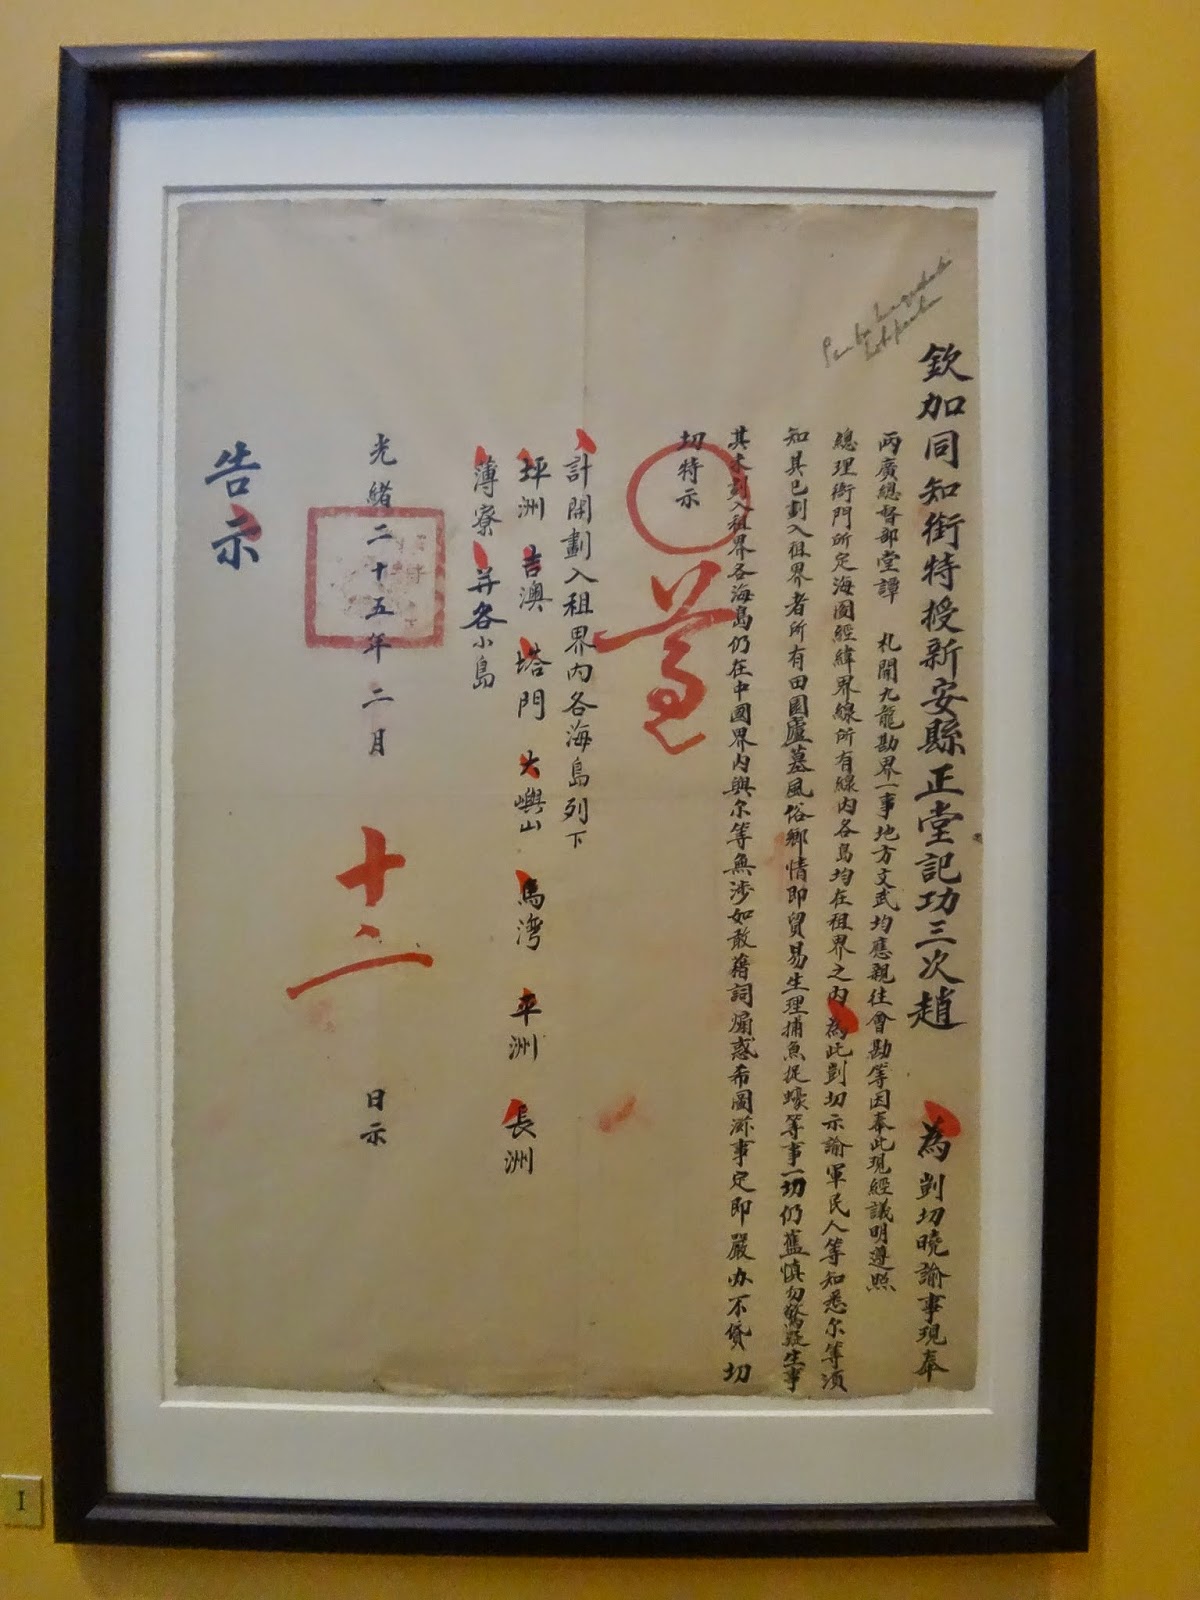 欽加同知銜特授新安縣正堂記功三次趙 為剴切曉諭事現奉
兩廣總督部堂譚 札開九龍勘界一事地方文武均應親往會勘等因奉此現經議明遵照
總理衙門所定海圖經緯界線所有線內各島均在租界之內為此剴切示諭軍民人等知悉尔等須
知其已劃入租界者所有田園廬墓風俗鄉情即貿易生理捕魚捉蠔等事一切仍舊慎勿驚疑生事
其未劃入租界各海島仍在中國界內與尔等無涉如敢藉詞煽惑希圖滋事定即嚴办不貸切
切特示
遵
計開劃入租界內各海島列下
坪洲 吉澳 塔門 大嶼山 馬灣 平洲 長洲
薄寮 并各小島
光緒二十五年二月 十二 日示
告示
I